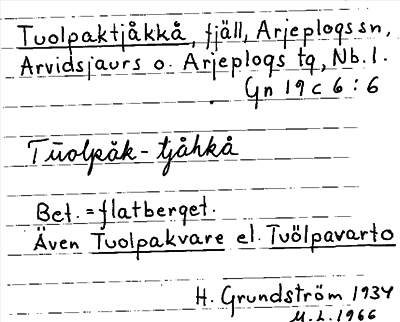 Tuolpaktjåkkå, fjäll, Arjeplogs sn,
Arvidsjaurs o. Arjeplogs tg, Nb. l.
Gn 19 c 6 : 6
Tuolpăk - tjåhkå
Bet. = flatberget.
Även Tuolpakvare el. Tuölpavarto
H. Grundström 1934
M.L. 1966